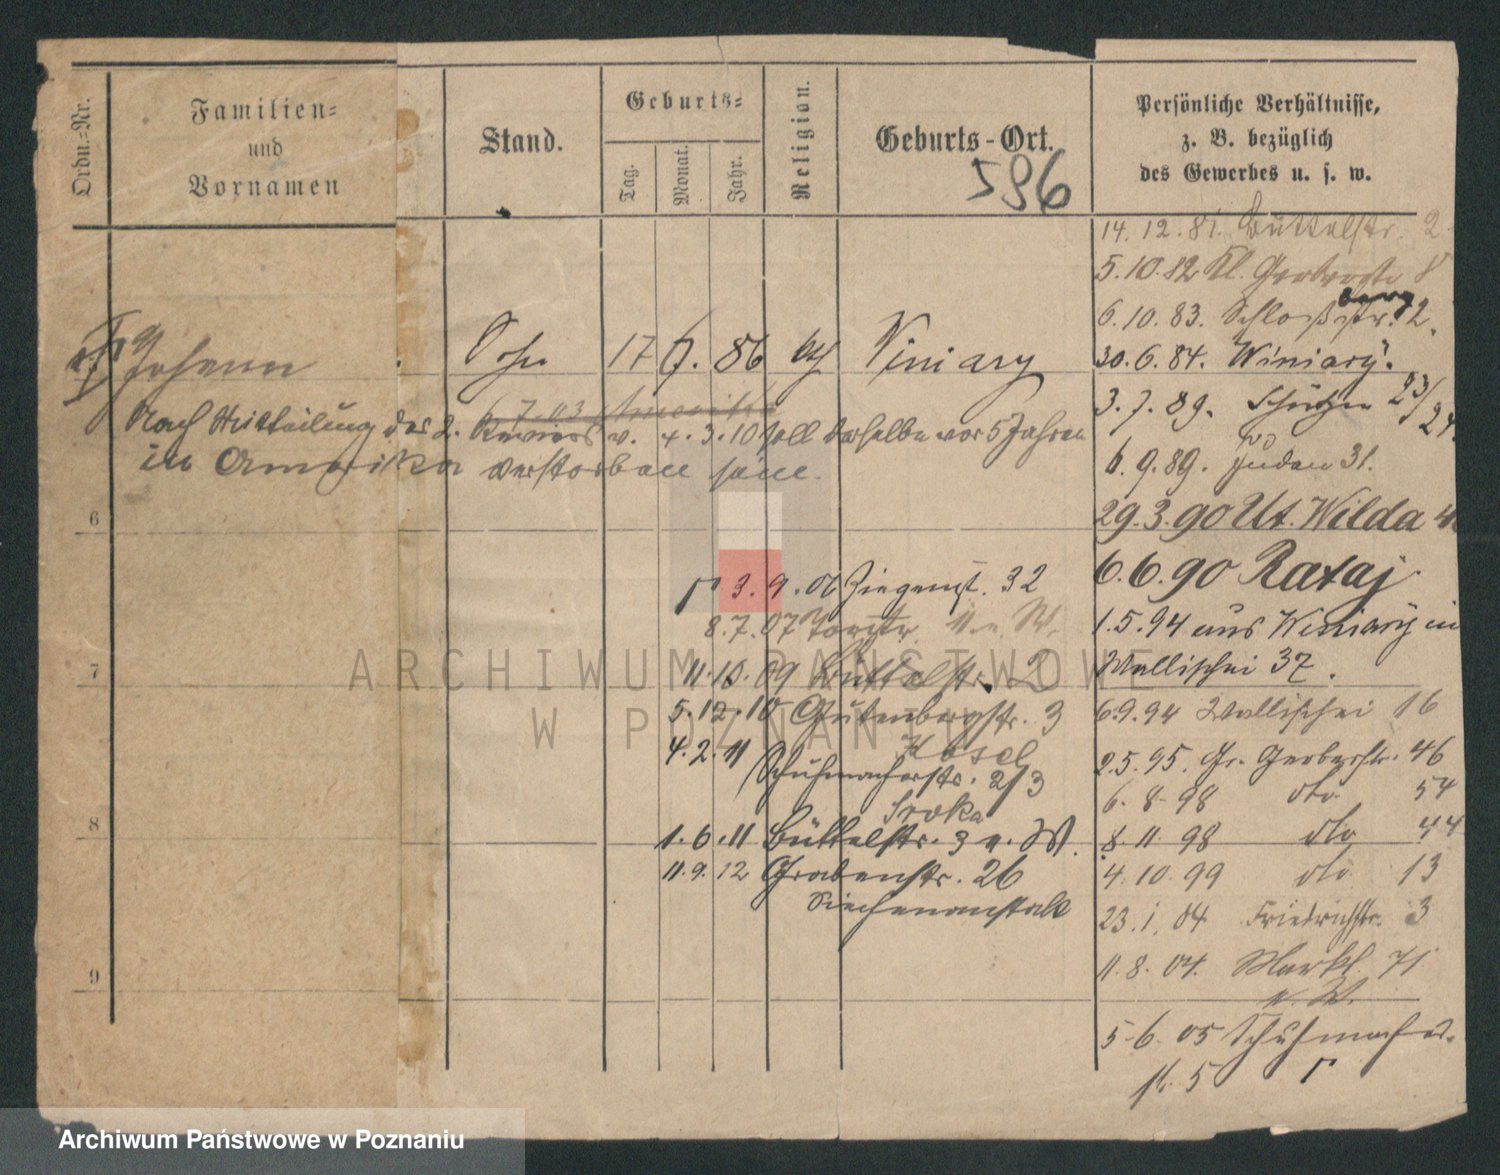 Ordn.-Nr.
Familien-
und
Vornamen
Stand.
Geburts-
Tag.
Monat.
Jahr.
Religion.
Geburts-Ort.
596
Persönliche Verhältnisse,
z. B. bezüglich
des Gewerbes u. s. w.
Johann Sohn 17 6. 86 kth Winiary
7.03 Amerika
Nach Mitteilung des 2. Reviers v. 4.3.10 soll derselbe vor 5 Jahren
in Amerika verstorben sein.
6
7
8
9
3.9.06 Ziegenst. 32
8.7.07 Torstr. 11 n. W.
11.10.09 Büttelstr. 2
5.12.10 Gutenbergstr. 3
4.2.11 Schuhmacherstr. 2/3
Sroka
1.6.11 Büttelstr. 3 n. W.
11.9.12 Grabenstr. 26
Siechenanstalt
14.12.81. Büttelstr. 2
5.10.82 Kl. Gerberstr 8
berg
6.10.83. Schloßstr. 2.
30.6.84. Winiary.
3.7.89. Schützen 23/24
6.9.89. Juden 31.
29.3.90 Ut. Wilda
6.6.90 Rataj
1.5.94 aus Winiary in
Wallischei 37.
6.9.94 Wallischei 16
2.5.95. Gr. Gerberstr. 46
6.8.98 dto 54
8.11.98 dto 44
4.10.99 dto 13
23.1.04 Friedrichstr. 3
11.8.04. Markt 71
n. W.
5.6.05 Schuhmacher-
str. 5
ARCHIWUM PAŃSTWOWE
W POZNANIU
Archiwum Państwowe w Poznaniu